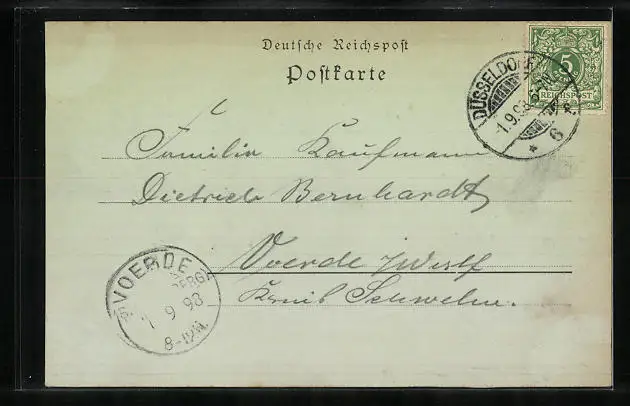 Deutsche Reichspost
Postkarte
5
REICHSPOST
DÜSSELDORF
1.9.98
* 6
Familie Kaufmann
Dietrich Bernhardt
Voerde i/Westf
Kreis Schwelm.
VOERDE
1 9 98
8-12N.